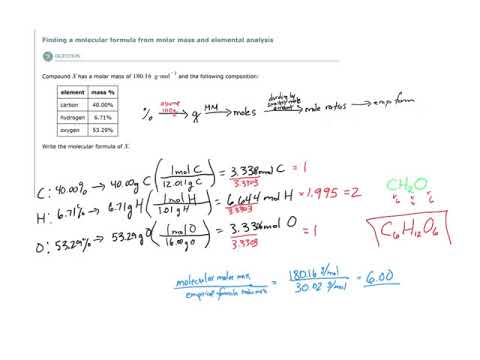 Finding a molecular formula from molar mass and elemental analysis
QUESTION
Compound X has a molar mass of 180.16 g·mol⁻¹ and the following composition:
element mass %
carbon 40.00%
hydrogen 6.71%
oxygen 53.29%
Write the molecular formula of X.
% assume 100g → g MM → moles dividing by smallest mole amount → mole ratios → emp form
C: 40.00% → 40.00g C (1 mol C / 12.011g C) = 3.330 mol C / 3.3303 = 1
H: 6.71% → 6.71g H (1 mol H / 1.01g H) = 6.644 mol H / 3.3303 = 1.995 = 2
O: 53.29% → 53.29g O (1 mol O / 16.00g O) = 3.330 mol O / 3.3303 = 1
CH₂O
C₆H₁₂O₆
molecular molar mass / empirical formula molar mass = 180.16 g/mol / 30.02 g/mol = 6.00